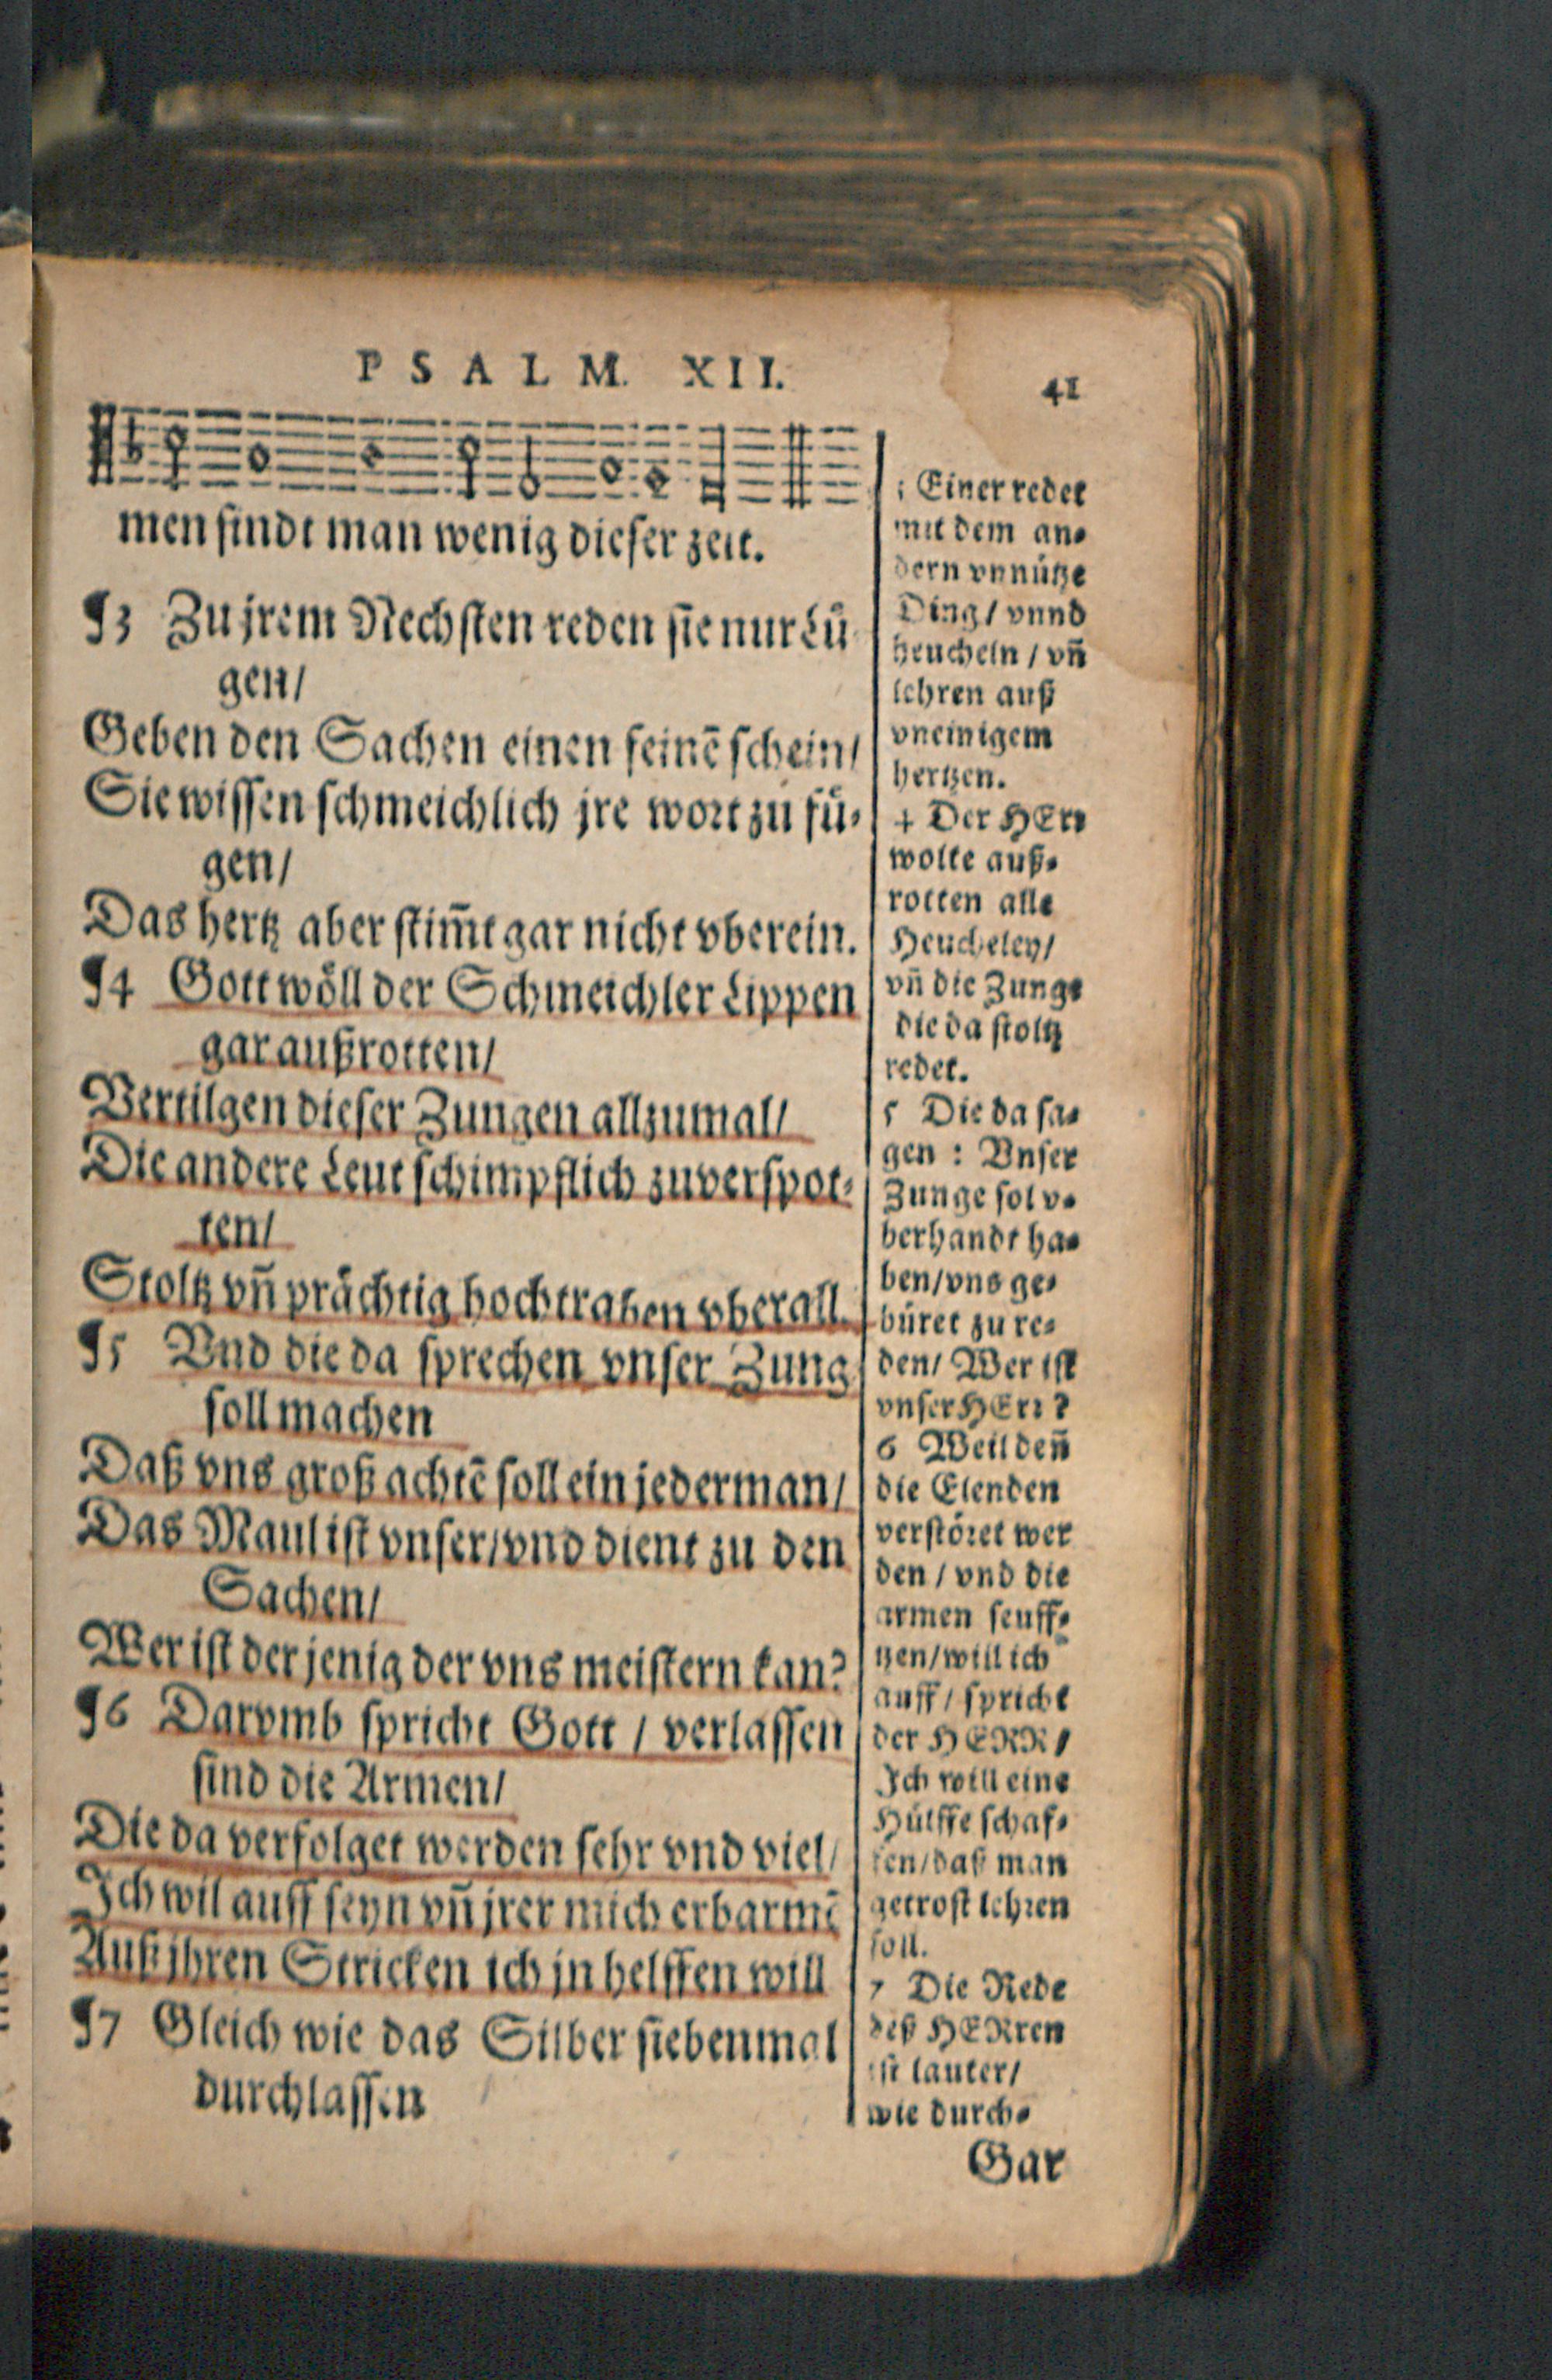 PSALM. XII. 41
men findt man wenig dieser zeit.
¶3 Zu jrem Nechsten reden sie nur Lů
gen/
Geben den Sachen einen feinē schein/
Sie wissen schmeichlich jre wort zu fů-
gen/
Das hertz aber stim̃t gar nicht vberein.
¶4 Gott wöll der Schmeichler Lippen
gar außrotten/
Vertilgen dieser Zungen allzumal/
Die andere Leut schimpflich zuverspot-
ten/
Stoltz vñ prächtig hochtraben vberall.
¶5 Vnd die da sprechen vnser Zung
soll machen
Daß vns groß achtē soll ein jederman/
Das Maul ist vnser/vnd dient zu den
Sachen/
Wer ist der jenig der vns meistern kan?
¶6 Darvmb spricht Gott / verlassen
sind die Armen/
Die da verfolget werden sehr vnd viel/
Ich wil auff seyn vñ jrer mich erbarmē
Auß jhren Stricken ich jn helffen will
¶7 Gleich wie das Silber siebenmal
durchlassen
3 Einer redet
mit dem an-
dern vnnütze
Ding / vnnd
heucheln / vñ
lehren auß
vneinigem
hertzen.
4 Der HErr
wolte auß-
rotten alle
Heucheley/
vñ die Zunge
die da stoltz
redet.
5 Die da sa-
gen : Vnser
Zunge sol v-
berhandt ha-
ben/vns ge-
büret zu re-
den/ Wer ist
vnser HErr ?
6 Weil deñ
die Elenden
verstöret wer
den / vnd die
armen seuff-
tzen/will ich
auff / spricht
der HERR /
Ich will eine
Hülffe schaf-
fen/daß man
getrost lehren
soll.
7 Die Rede
deß HERren
ist lauter/
wie durch-
Gar